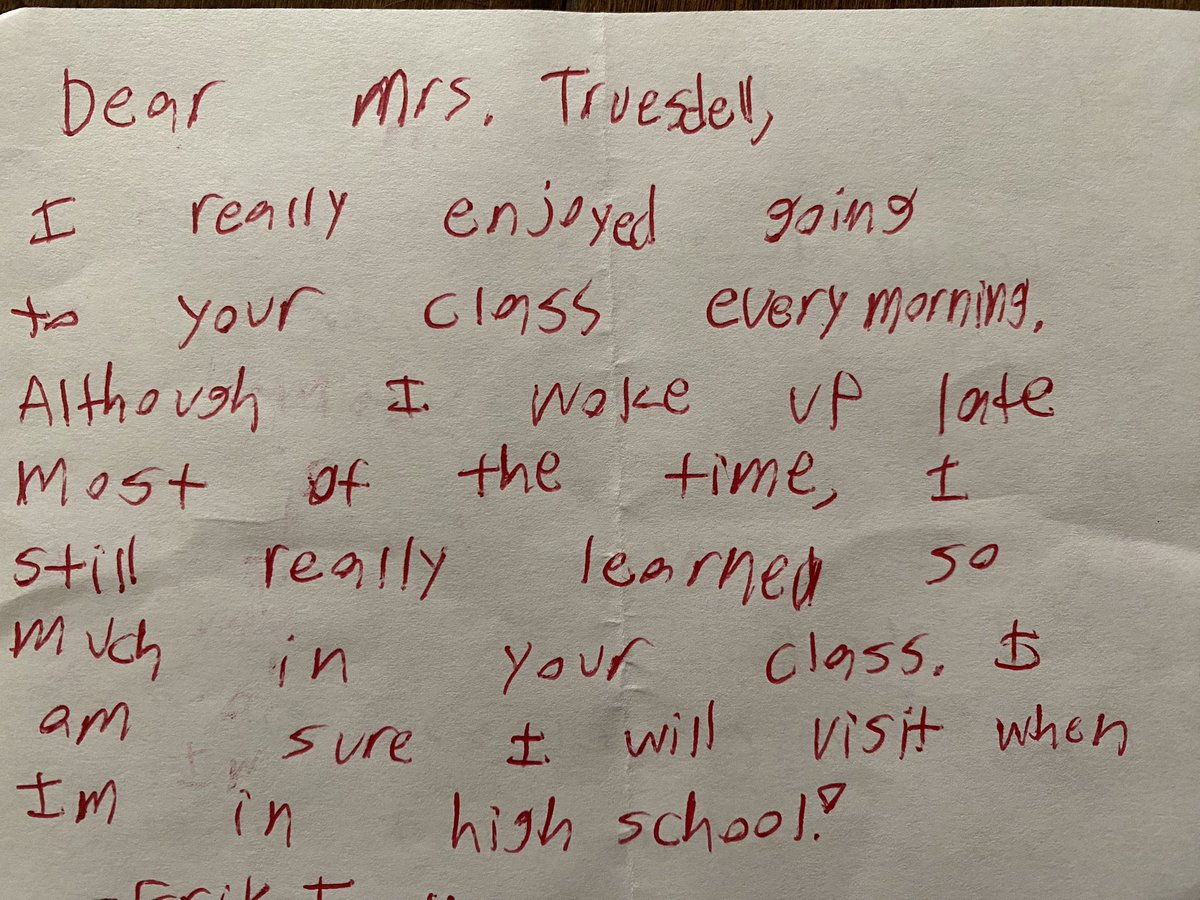 Dear Mrs. Truesdell,
I really enjoyed going
to your class every morning.
Although I woke up late
most of the time, I
still really learned so
much in your class. I
am sure I will visit when
Im in high school!